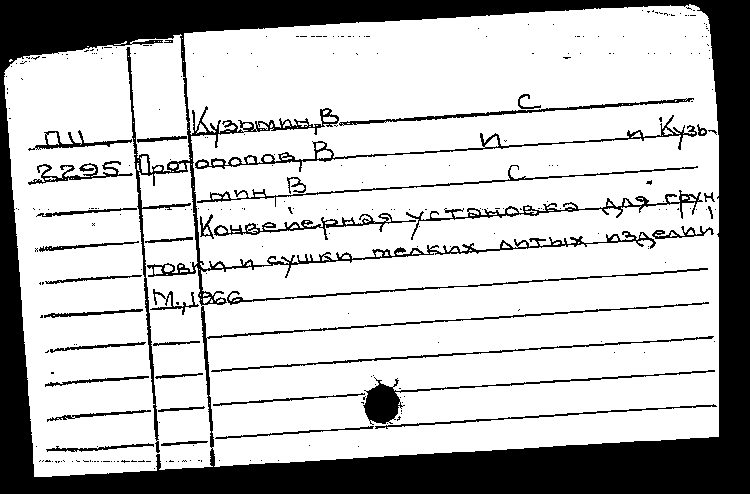 Кузьмин, В С
ПИ
2295 Протопопов, В И и Кузь-
мин, В С
Конвейерная установка для грун-
товки и сушки мелких литых изделий.
М., 1966